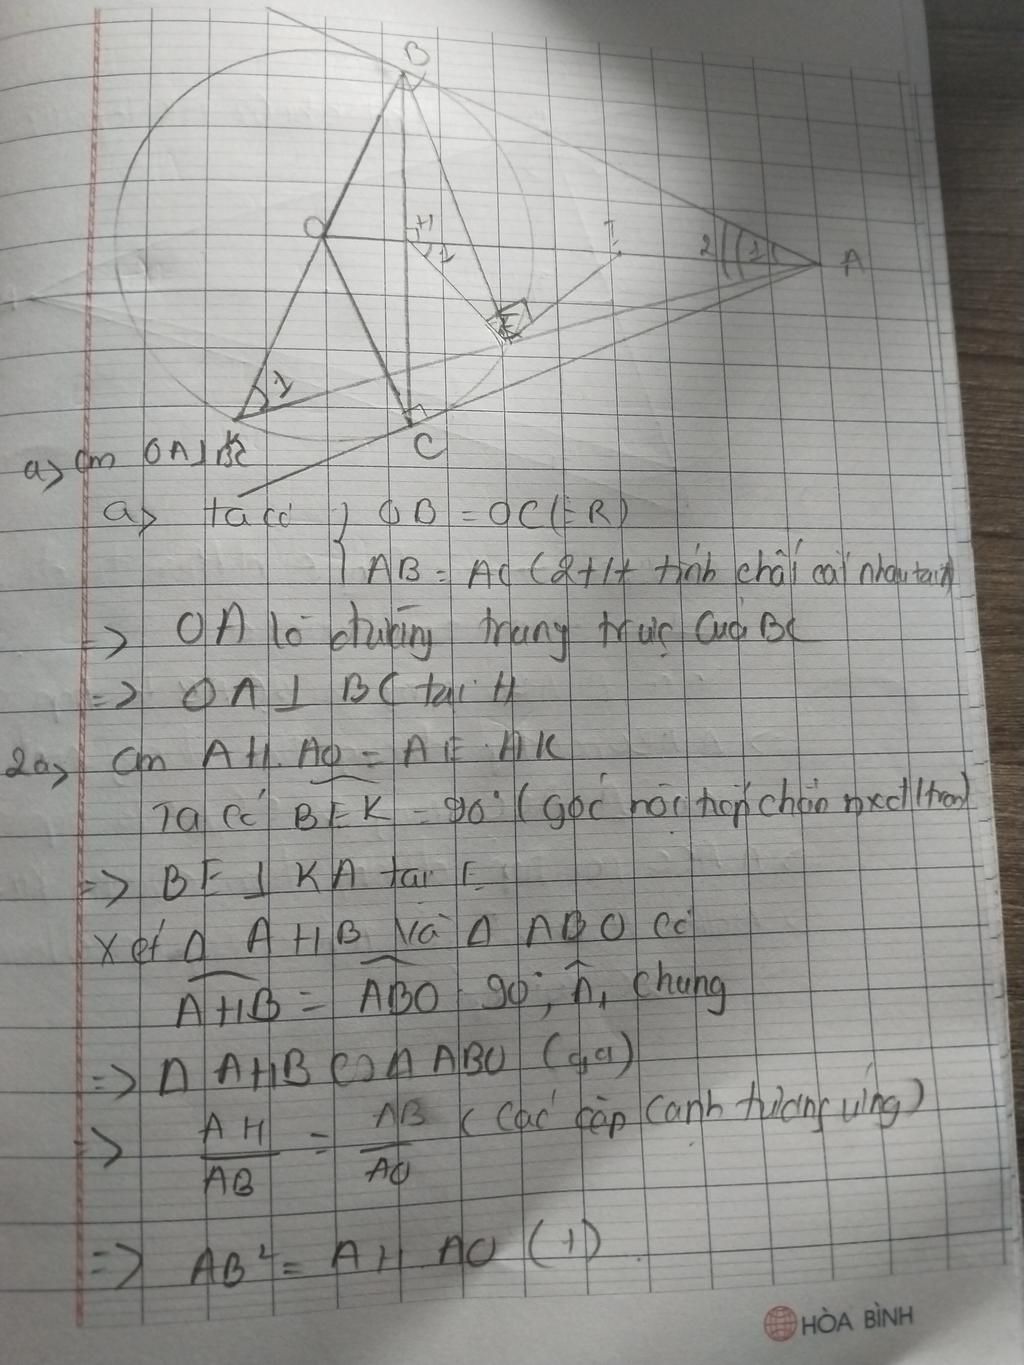 B
O
H
1
I
2
1
A
E
1
K
C
a> cm OA⊥BC
a> ta có { OB = OC (=R)
AB = AC (2 t/t tính chất cắt nhau tại A)
=> OA là đường trung trực của BC
=> OA ⊥ BC tại H
2a> cm AH.AO = AE.AK
Ta có BEK = 90° (góc nội tiếp chắn nxđ/tròn)
=> BE ⊥ KA tại E
Xét Δ AHB và Δ ABO có
AHB = ABO = 90°, Â₁ chung
=> Δ AHB ∽ Δ ABO (g.g)
=> AH/AB = AB/AO (các cặp cạnh tương ứng)
=> AB² = AH AO (1)
HÒA BÌNH